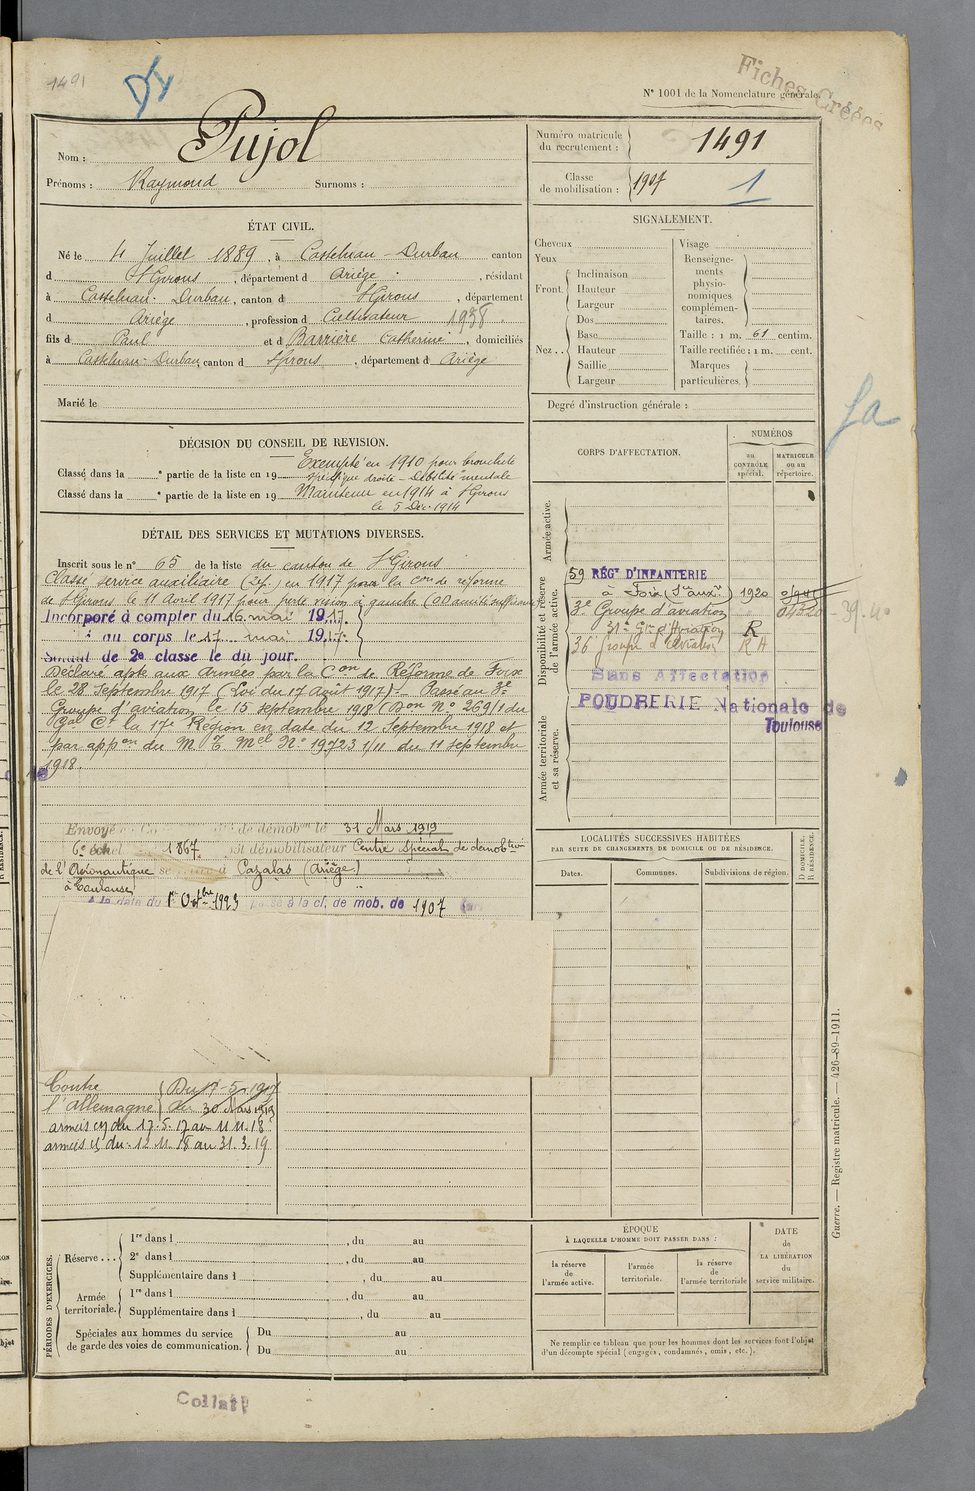 1491
Fiches Créées
N° 1001 de la Nomenclature générale.
Nom : Pujol
Prénoms : Raymond Surnoms :
Numéro matricule du recrutement : 1491
Classe de mobilisation : 1907 1
ÉTAT CIVIL.
Né le 4 Juillet 1889, à Castelnau-Durban canton
d St Girons, département d Ariège, résidant
à Castelnau-Durban, canton d St Girons, département
d Ariège, profession d Cultivateur 1938
fils d Paul et d Barrière Catherine, domiciliés
à Castelnau-Durban, canton d St Girons, département d Ariège
Marié le
SIGNALEMENT.
Cheveux
Yeux
Front. Inclinaison
Hauteur
Largeur
Nez.. Dos
Base
Hauteur
Saillie
Largeur
Visage
Renseignements physionomiques complémentaires.
Taille : 1 m. 61 centim.
Taille rectifiée : 1 m. cent.
Marques particulières.
Degré d'instruction générale :
DÉCISION DU CONSEIL DE REVISION.
Exempté en 1910 pour bronchite
Classé dans la e partie de la liste en 19 spécifique droite - Débilité mentale
Classé dans la e partie de la liste en 19 Maintenu en 1914 à St Girons
le 5 Déc. 1914
DÉTAIL DES SERVICES ET MUTATIONS DIVERSES.
Inscrit sous le n° 65 de la liste du canton de St Girons
Classé service auxiliaire (2f.) en 1917 par la con de réforme
de St Girons le 11 Avril 1917 pour perte vision à gauche
Incorporé à compter du 16 mai 1917.
au corps le 17 mai 1917.
Soldat de 2e classe le du jour.
Déclaré apte aux Armées par la Con de Réforme de Foix
le 28 Septembre 1917 (Loi du 17 Août 1917) - Passé au 3e
Groupe d'aviation le 15 septembre 1918 (Don N° 269/1 du
Gal Ct la 17e Région en date du 12 Septembre 1918 et
par appon du M T Mel N° 19723 1/11 du 11 septembre
1918.
Envoyé de démobon le 31 Mars 1919
6e échel 1867 démobilisateur Centre spécial de démobtion
de l'Aéronautique se à Cazalas (Ariège)
à Toulouse
A la date du 1er Octbre 1923 à la cl. de mob. de 1907
Contre l'Allemagne Du 17-5-1917
au 30 Mars 1919
armées en du 17.5.17 au 11.11.18
armées en du 12.11.18 au 31.3.19
CORPS D'AFFECTATION.
NUMÉROS
au CONTRÔLE spécial.
MATRICULE ou au répertoire.
Armée active.
Disponibilité et réserve de l'armée active.
Armée territoriale et sa réserve.
59 RÉGt D'INFANTERIE
à Foix (S. aux.) 1920
3e Groupe d'aviation
31e Gr. d'Aviation R
36 Groupe d'aviation R A
Sans Affectation
POUDRERIE Nationale de
Toulouse
LOCALITÉS SUCCESSIVES HABITÉES
PAR SUITE DE CHANGEMENTS DE DOMICILE OU DE RÉSIDENCE.
Dates. Communes. Subdivisions de région.
D DOMICILE.
R RÉSIDENCE.
PÉRIODES D'EXERCICES.
Réserve... 1re dans l , du au
2e dans l , du au
Supplémentaire dans l , du au
Armée territoriale. 1re dans l , du au
Supplémentaire dans l , du au
Spéciales aux hommes du service de garde des voies de communication. Du au
Du au
ÉPOQUE
À LAQUELLE L'HOMME DOIT PASSER DANS :
la réserve de l'armée active.
l'armée territoriale.
la réserve de l'armée territoriale
DATE de LA LIBÉRATION du service militaire.
Ne remplir ce tableau que pour les hommes dont les services font l'objet
d'un décompte spécial (engagés, condamnés, omis, etc.).
Guerre. — Registre matricule. — 426-89-1911.